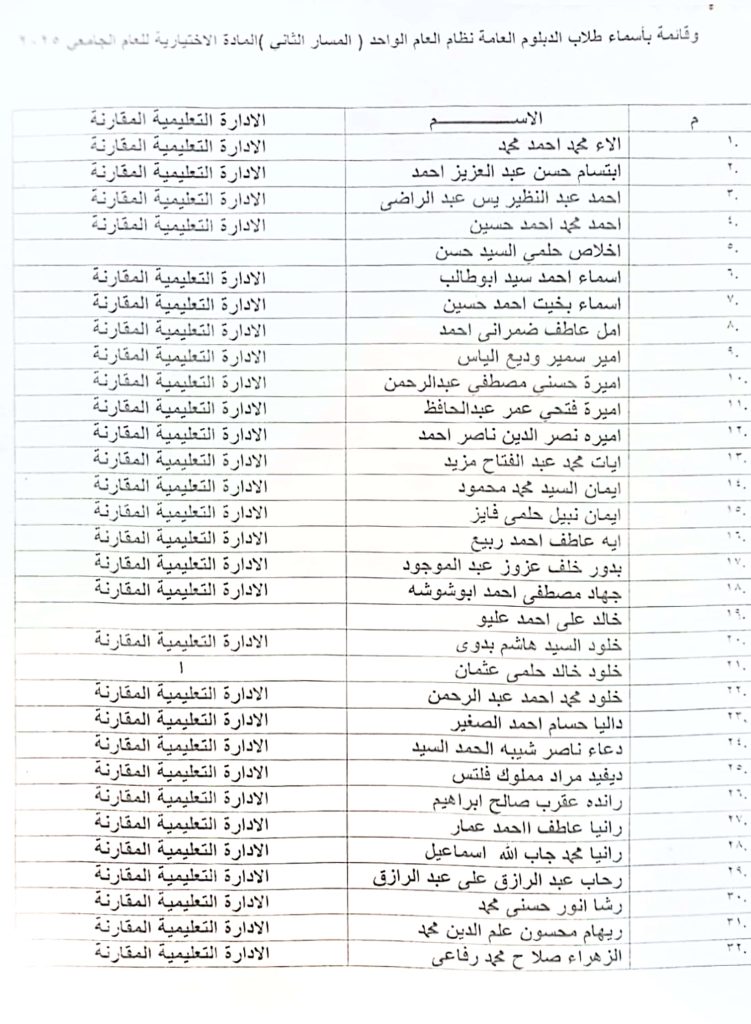 وقائمة بأسماء طلاب الدبلوم العامة نظام العام الواحد ( المسار الثانى )المادة الاختيارية للعام الجامعي ٢٠٢٥
م الاســـــــــــم الادارة التعليمية المقارنة
.١ الاء محمد احمد محمد الادارة التعليمية المقارنة
.٢ ابتسام حسن عبد العزيز احمد الادارة التعليمية المقارنة
.٣ احمد عبد النظير يس عبد الراضى الادارة التعليمية المقارنة
.٤ احمد محمد احمد حسين الادارة التعليمية المقارنة
.٥ اخلاص حلمي السيد حسن
.٦ اسماء احمد سيد ابوطالب الادارة التعليمية المقارنة
.٧ اسماء بخيت احمد حسين الادارة التعليمية المقارنة
.٨ امل عاطف ضمرانى احمد الادارة التعليمية المقارنة
.٩ امير سمير وديع الياس الادارة التعليمية المقارنة
.١٠ اميرة حسني مصطفي عبدالرحمن الادارة التعليمية المقارنة
.١١ اميرة فتحي عمر عبدالحافظ الادارة التعليمية المقارنة
.١٢ اميره نصر الدين ناصر احمد الادارة التعليمية المقارنة
.١٣ ايات محمد عبد الفتاح مزيد الادارة التعليمية المقارنة
.١٤ ايمان السيد محمد محمود الادارة التعليمية المقارنة
.١٥ ايمان نبيل حلمى فايز الادارة التعليمية المقارنة
.١٦ ايه عاطف احمد ربيع الادارة التعليمية المقارنة
.١٧ بدور خلف عزوز عبد الموجود الادارة التعليمية المقارنة
.١٨ جهاد مصطفى احمد ابوشوشه الادارة التعليمية المقارنة
.١٩ خالد على احمد عليو
.٢٠ خلود السيد هاشم بدوى الادارة التعليمية المقارنة
.٢١ خلود خالد حلمى عثمان ا
.٢٢ خلود محمد احمد عبد الرحمن الادارة التعليمية المقارنة
.٢٣ داليا حسام احمد الصغير الادارة التعليمية المقارنة
.٢٤ دعاء ناصر شيبه الحمد السيد الادارة التعليمية المقارنة
.٢٥ ديفيد مراد مملوك فلتس الادارة التعليمية المقارنة
.٢٦ رانده عقرب صالح ابراهيم الادارة التعليمية المقارنة
.٢٧ رانيا عاطف ااحمد عمار الادارة التعليمية المقارنة
.٢٨ رانيا محمد جاب الله اسماعيل الادارة التعليمية المقارنة
.٢٩ رحاب عبد الرازق على عبد الرازق الادارة التعليمية المقارنة
.٣٠ رشا انور حسنى محمد الادارة التعليمية المقارنة
.٣١ ريهام محسون علم الدين محمد الادارة التعليمية المقارنة
.٣٢ الزهراء صلا ح محمد رفاعى الادارة التعليمية المقارنة